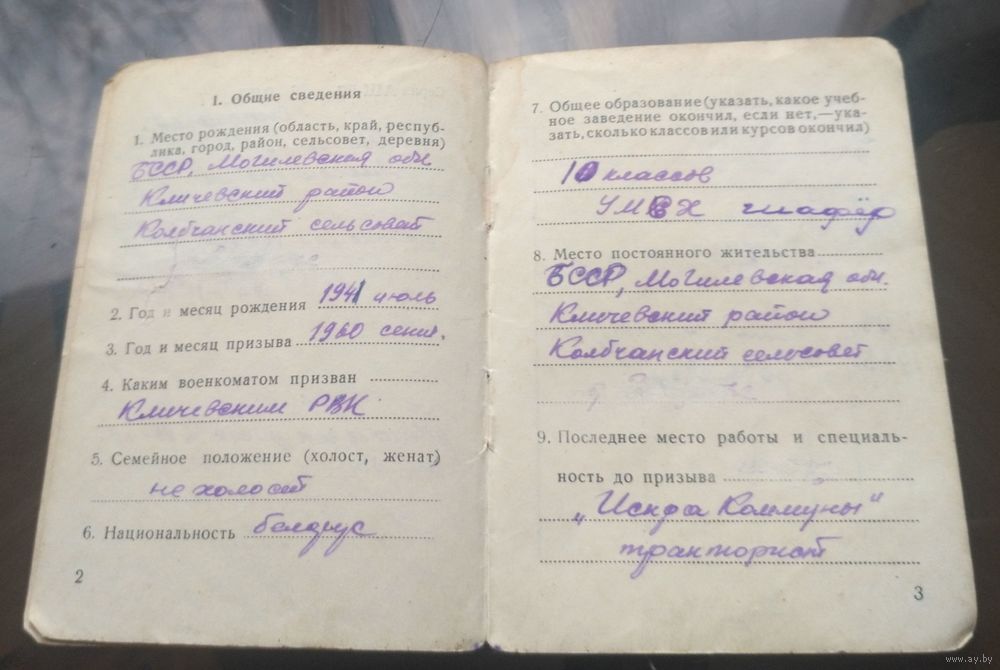 1. Общие сведения
1. Место рождения (область, край, респуб-
лика, город, район, сельсовет, деревня)
БССР, Могилевская обл.
Кличевский район
Колбчанский сельсовет
2. Год и месяц рождения 1941 июль
3. Год и месяц призыва 1960 сент.
4. Каким военкоматом призван
Кличевским РВК
5. Семейное положение (холост, женат)
не холост
6. Национальность белорус
2
7. Общее образование (указать, какое учеб-
ное заведение окончил, если нет,—ука-
зать, сколько классов или курсов окончил)
10 классов
УМСХ шофёр
8. Место постоянного жительства
БССР, Могилевская обл.
Кличевский район
Колбчанский сельсовет
9. Последнее место работы и специаль-
ность до призыва
„Искра Коммуны"
тракторист
3
www.ay.by